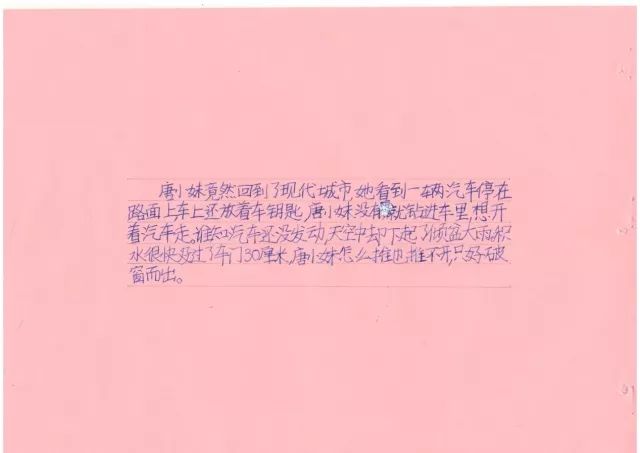 唐小妹竟然回到了现代城市,她看到一辆汽车停在
路面上车上还放着车钥匙,唐小妹没有就钻进车里,想开
着汽车走。谁知汽车还没发动,天空中却下起了倾盆大雨,积
水很快没过了车门30厘米,唐小妹怎么推也推不开,只好破
窗而出。